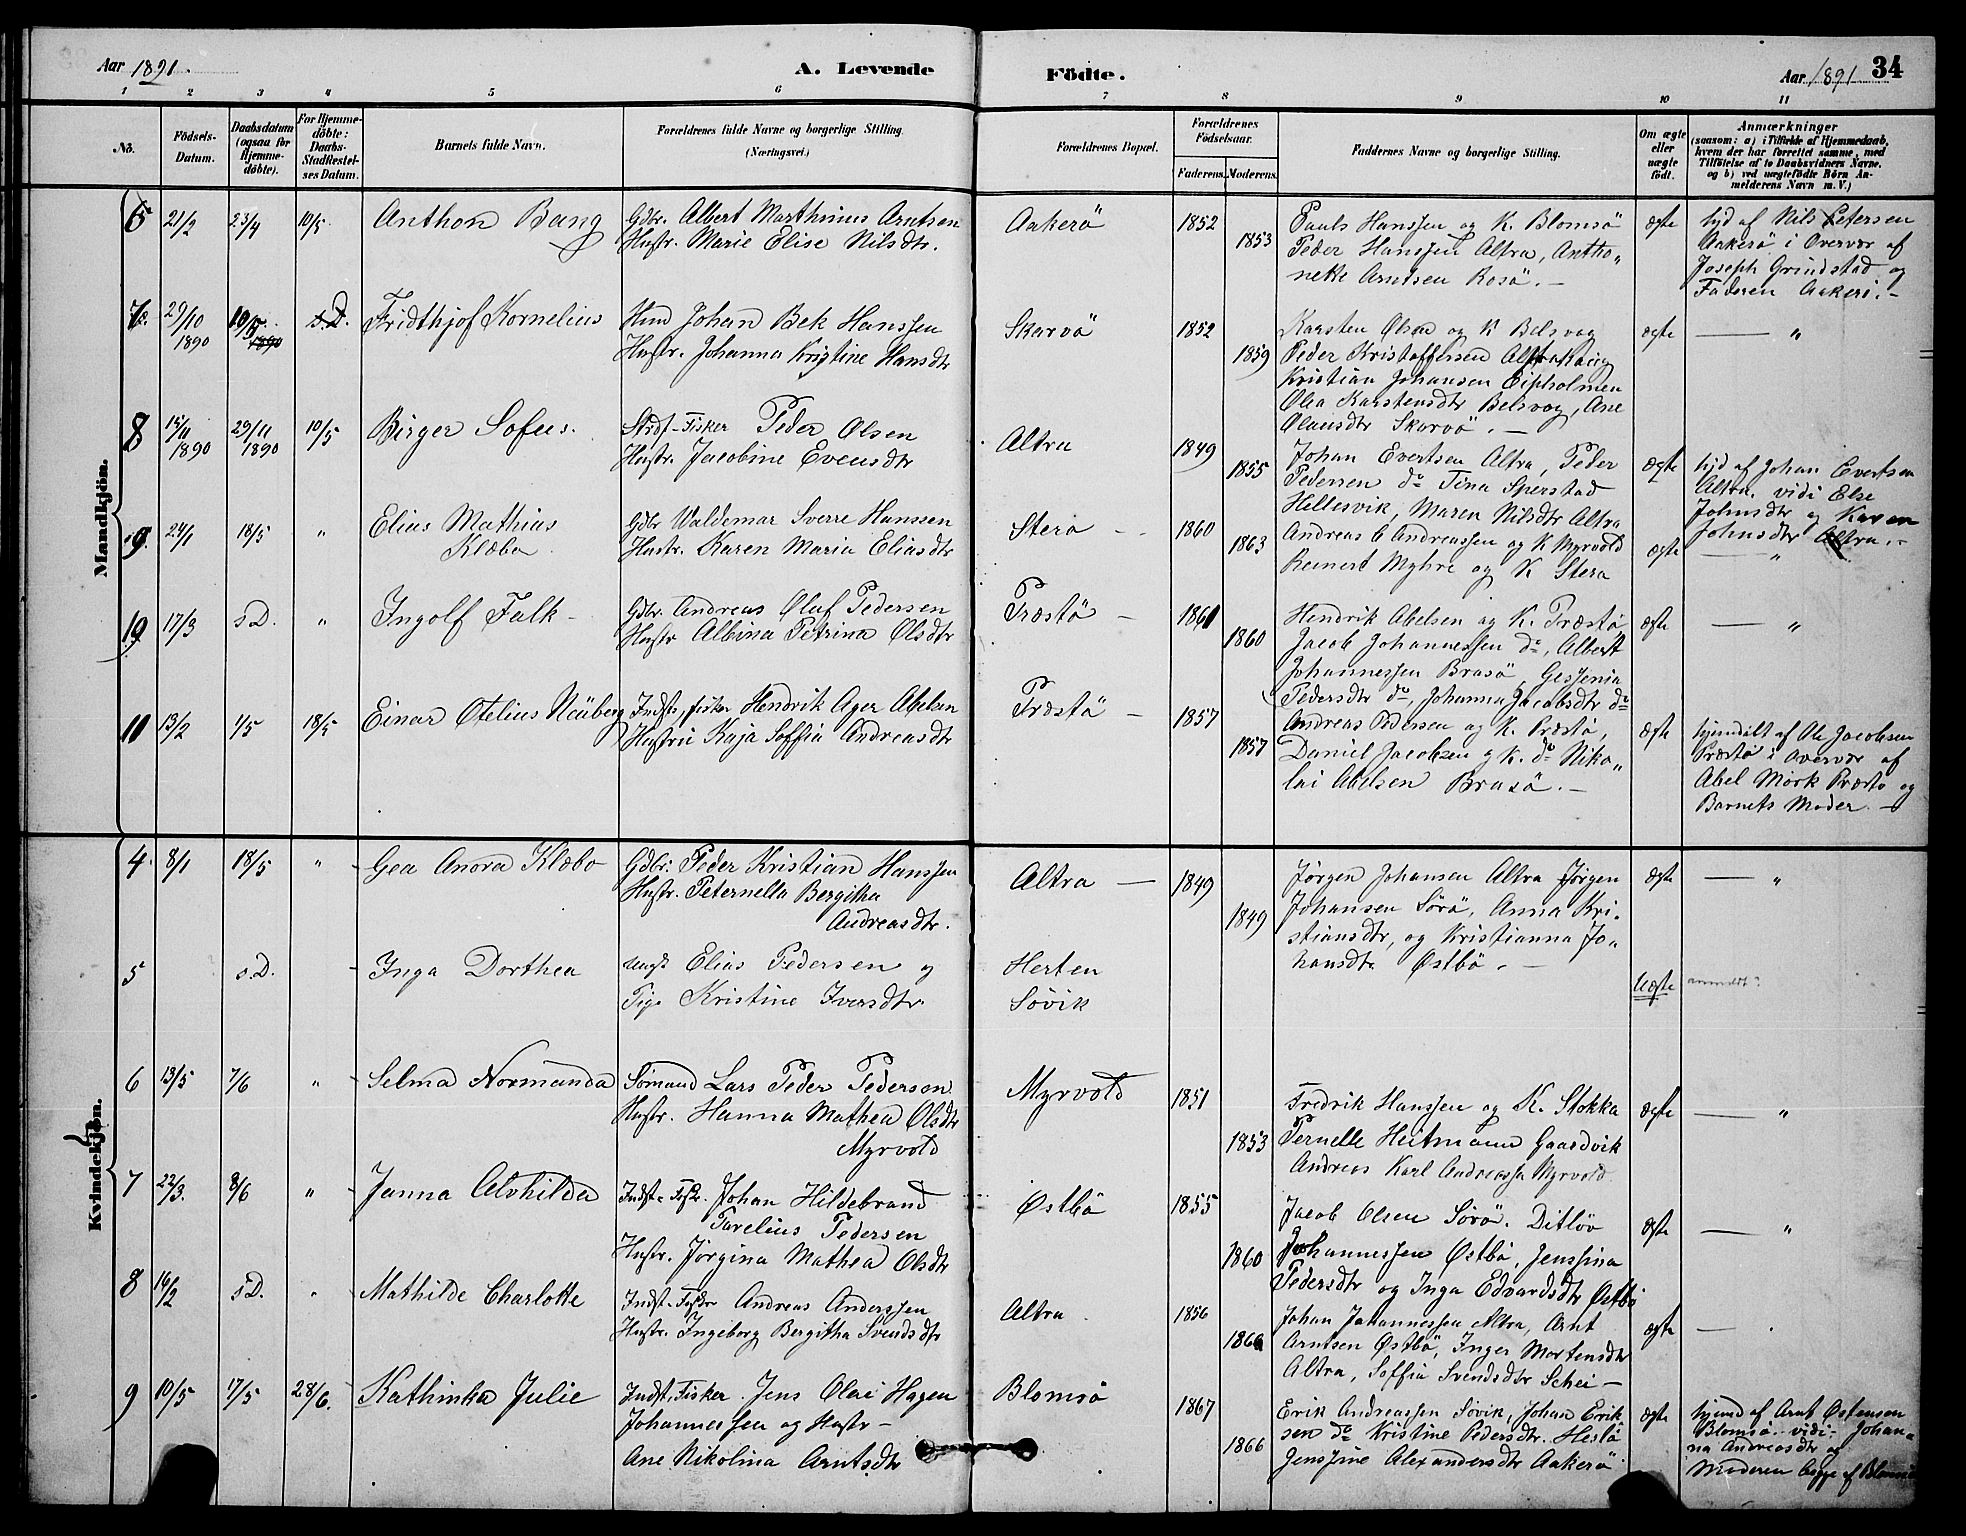 Aar 1891. A. Levende Födte. Aar 1891 34
1 2 3 4 5 6 7 8 9 10 11
No. Födsels-Datum. Daabsdatum (ogsaa for Hjemmedöbte). For Hjemmedöbte: Daabs-Stadfæstelses Datum. Barnets fulde Navn. Forældrenes fulde Navne og borgerlige Stilling. (Næringsvei.) Forældrenes Bopæl. Forældrenes Födselsaar. Faderens. Moderens. Faddernes Navne og borgerlige Stilling. Om ægte eller uægte födt. Anmærkninger (saasom: a) i Tilfælde af Hjemmedaab, hvem der har forrettet samme, med Tilföielse af to Daabsvidners Navne. og b) ved uægtefödte Börn Anmelderens Navn m. V.)
Mandkjön.
6 21/2 23/4 10/5 Anthon Bang
Gdbr. Albert Marthinus Arntsen
Hustr. Marie Elise Nilsdtr.
Aakerö 1852 1853
Pauls Hanssen og K. Blomsö
Peder Hanssen Altra, Antho„
nette Arntsen Rosö. –
ægte
hjd af Nils Petersen
Aakerö i Overvær af
Joseph Grindstad og
Faderen Aakerö. –
7 29/10 1890 19/5 1890 s.D. Fridthjof Kornelius
Johan Bek Hanssen
Hustr. Johanna Kristine Hansdtr
Skarvö 1852 1859
Karsten Olsen og K Belsvag
Peder Kristoffersen
Kristian Johansen
Olea Karstensdtr Belsvog, Ane
Olausdtr Skarvö. –
ægte — „
8 15/11 1890 29/11 1890 10/5 Birger Sofus.
Fisker Peder Olsen
Hustr. Jacobine Evensdtr
Altra 1849 1855
Johan Evertsen Altra, Peder
Pedersen do Tina Sperstad
Hellesvik, Maren Nilsdtr Altra
ægte
hjd af Johan Evertsen
Altra. vidi Else
Johnsdtr og Karen
Johnsdtr Altra. –
9. 24/1 18/5 „ Elias Mathias
Klæbo
Gdbr Waldemar Sverre Hanssen
Hustr. Karen Maria Eliasdtr
Stera 1860 1863
Andreas C Andreassen og K Myrvold
Reinert Myhre og K Stera
ægte — „
10 17/3 s.D. „ Ingolf Falk –
Gdbr. Andreas Oluf Pedersen
Hustr Albina Petrina Olsdtr
Præstö 1861 1860
Hendrik Abelsen og K. Præstö
Jacob Johannessen do, Albert
Johannessen Brasö, Gesjenia
Pedersdtr do, Johanna Jacobsdtr do
ægte — „
11 13/2 1/5 18/5 Einar Otelius Neüberg
Indst, fisker Hendrik Ager Abelsen
Hustru Kaja Soffia Andreasdtr
Præstö 1857 1857
Andreas Pedersen og K. Præstö,
Daniel Jacobsen og K. do Niko„
lai Abelsen Brasö. –
ægte
hjemdøbt af Ole Jacobsen
Præstö i overvær af
Abel Mörk Præstö og
Barnets Moder. –
Kvindekjön.
4. 8/1 18/5 „ Gea Anora Klæbo
Gdbr. Peder Kristian Hanssen
Hustr. Peternella Bergitha
Andreasdtr.
Altra 1849 1849
Jørgen Johansen Altra Jørgen
Johansen Sörö, Anna Kri„
stiansdtr, og Kristianna Jo„
hansdtr Østbö. –
ægte — „
5 s.D. Inga Dorthea
Elias Pedersen og
Pige Kristine Iversdtr.
Herten
Sövik
Uægte
6 13/5 7/6 „ Selma Normanda
Sømand Lars Peder Pedersen
Hustr. Hanna Mathea Olsdtr
Myrvold
Myrvold 1851 1853
Fredrik Hanssen og K. Stokka
Pernelle Heitmann Gaasdvik
Andreas Karl Andreassen Myrvold.
ægte — „
7 22/3. 8/6 „ Janna Alvhilda
Indst. Johan Hildebrand
Parelius Pedersen
Hustr. Jørgina Mathea Olsdtr
Østbö 1855 1860
Jacob Olsen Sörö. Ditløv
Johannessen Østbö, Jenssina
Pedersdtr og Inga Edvardsdtr Østbö
ægte — „
8 14/2 s.D. „ Mathilde Charlotte
Indst. Andreas Anderssen
Hustr. Ingeborg Bergitha Svendsdtr
Altra 1856
Johan Johannessen Altra, Arnt
Arntsen Østbö, Inger Mortensdtr
Altra, Soffia Svendsdtr Schei –
ægte — „
9 10/5 17/5 28/6. Kathinka Julie
Indst. Fisker. Jens Olai Hagen
Johannessen og Hustr –
Ane Nikolina Arntsdtr
Blomsö 1867 1866
Erik Andreassen Sövik, Johan Erik
sen do Kristine Pedersdtr. Heslö
Jenssine Alexandersdtr Aakerö
ægte
hjemd af Arnt Østensen
Blomsö. vidi. Johan„
na Andreasdtr og
Moderen begge af Blomsö